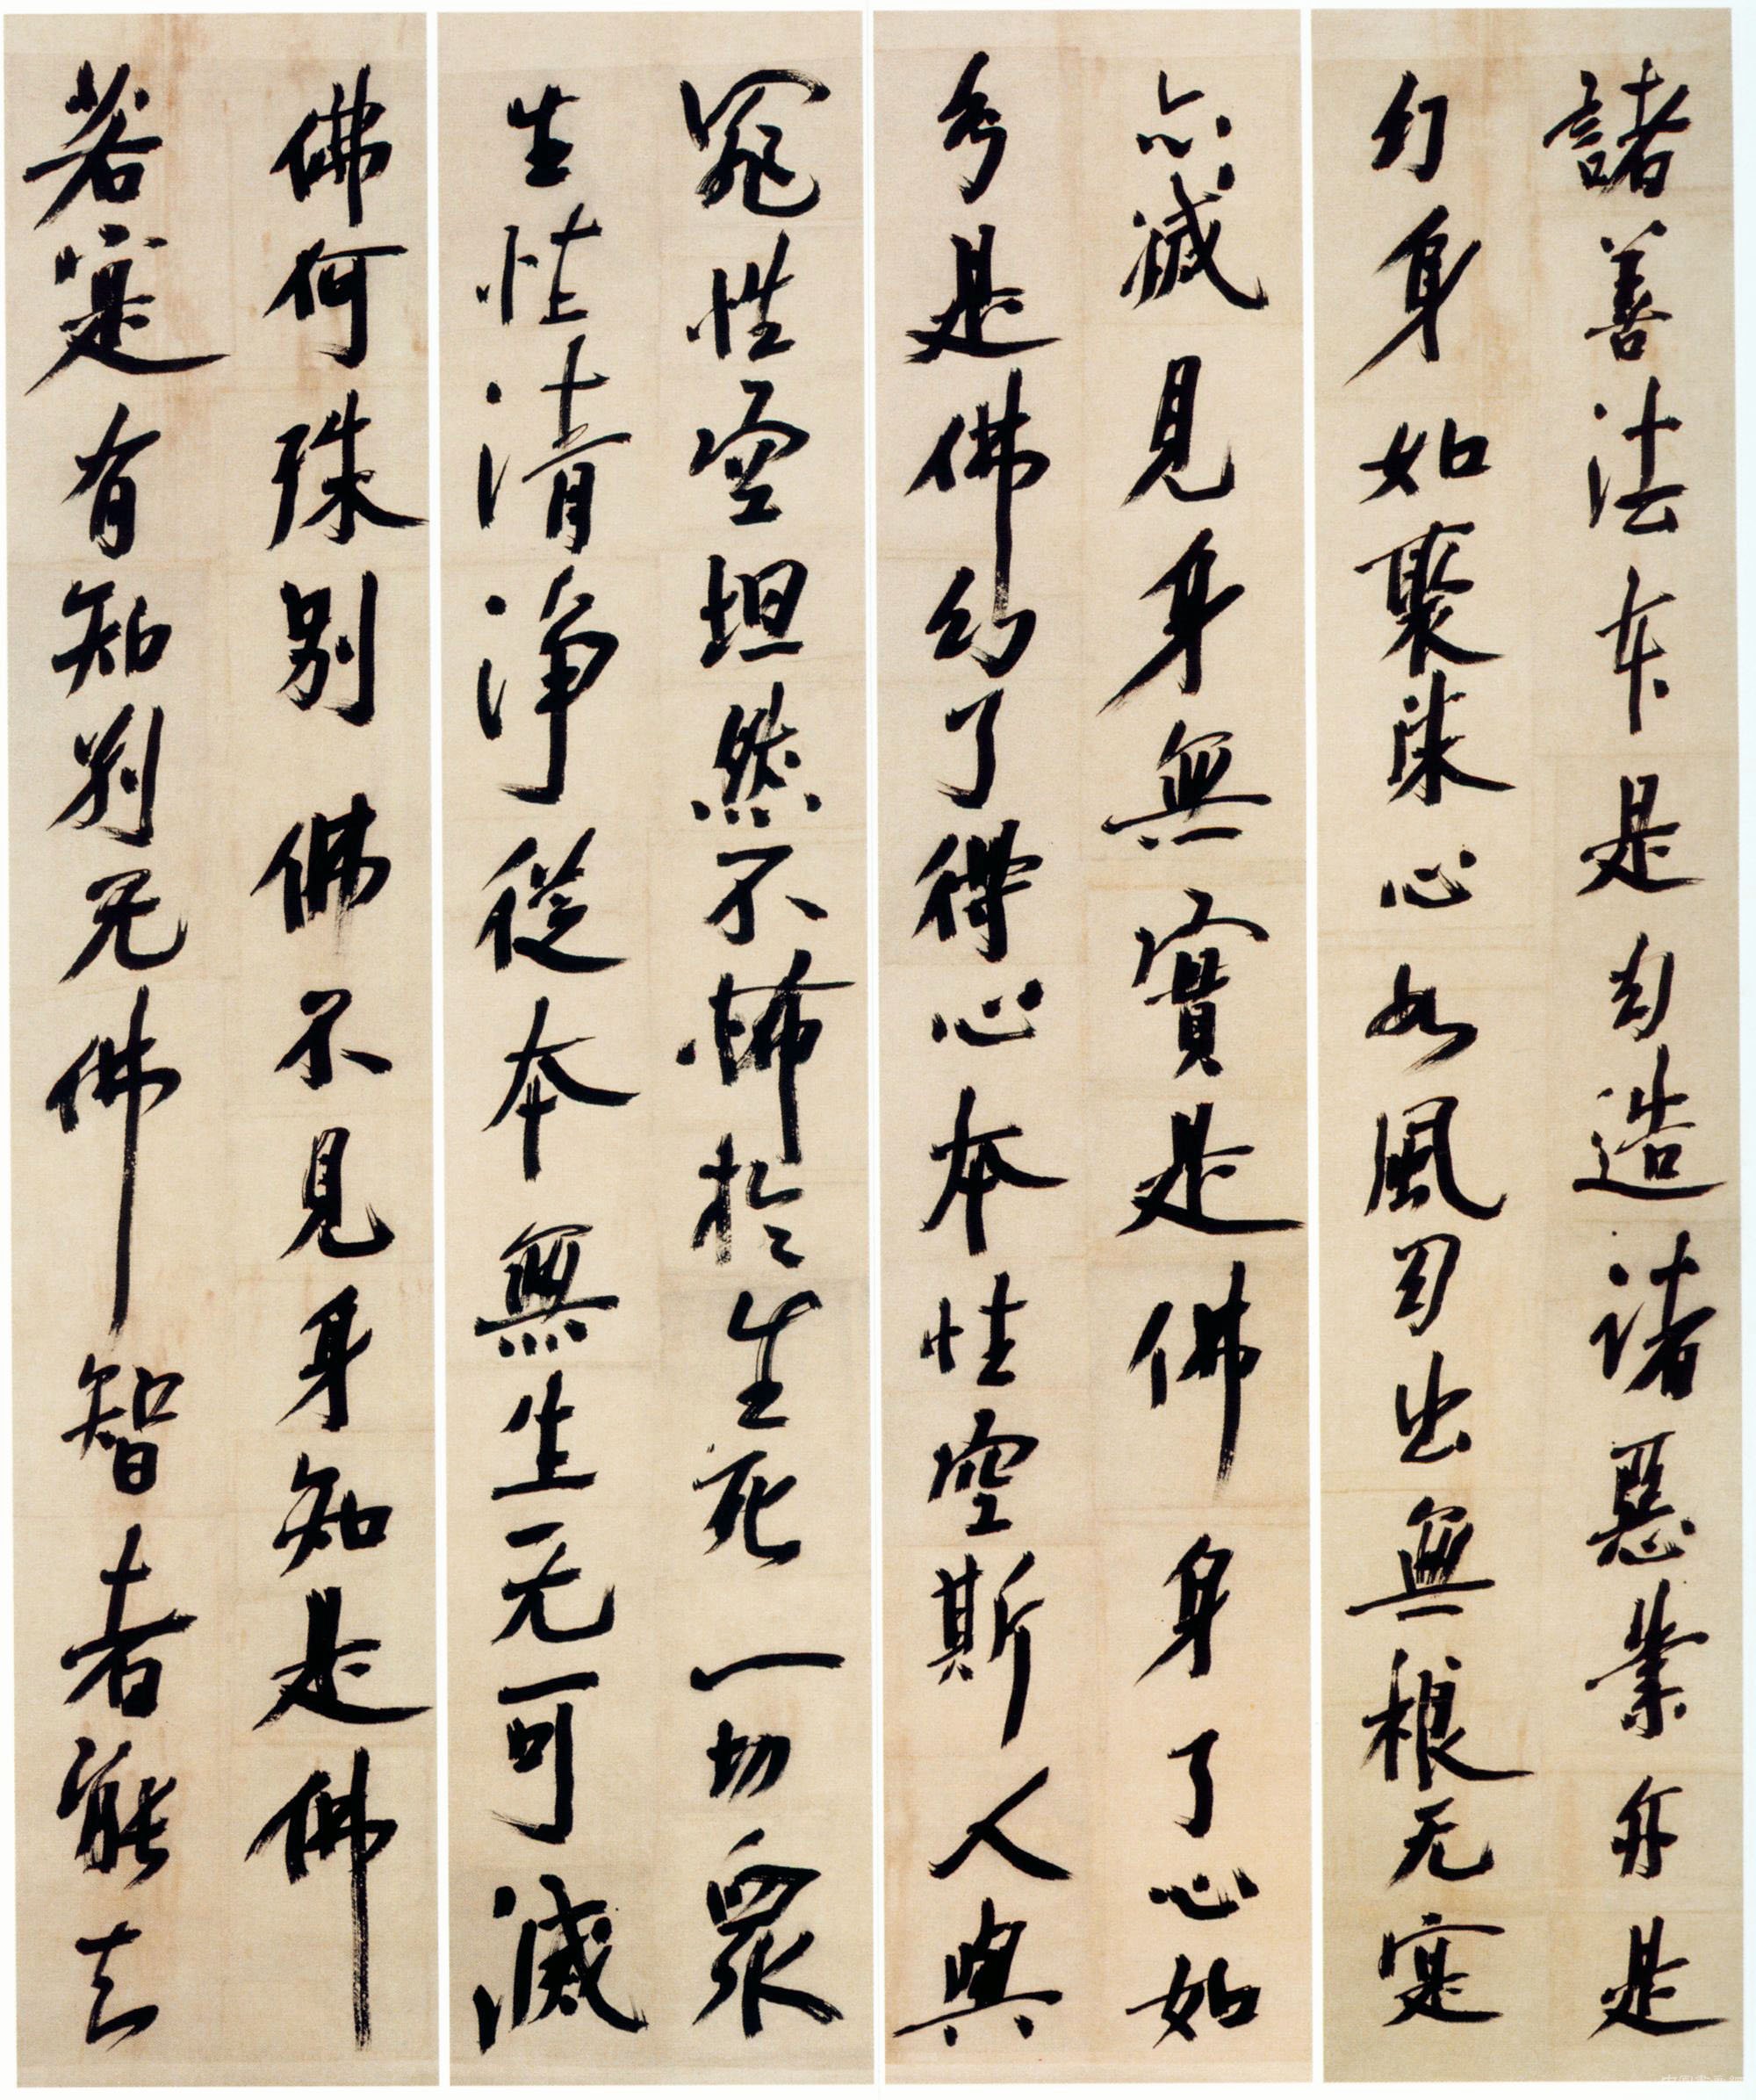 諸善法本是幻造諸惡業亦是
幻身如聚沫心如風幻出無根无寔
亦滅見身無實是佛身了心如
幻是佛幻了得心本性空斯人與
罪性空坦然不怖於生死一切眾
生性清淨從本無生无可滅
佛何殊別佛不見身知是佛
若寔有知別无佛智者能知